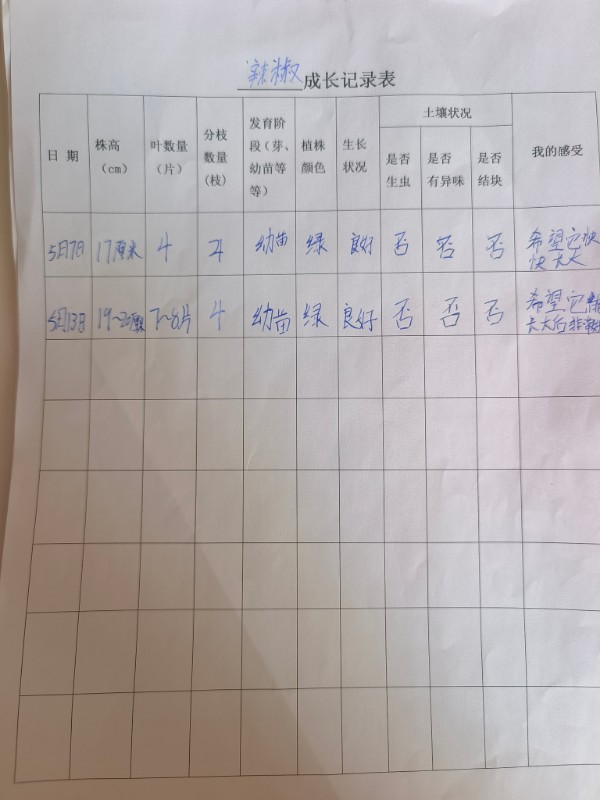 辣椒成长记录表
土壤状况
日 期 株高（cm） 叶数量（片） 分枝数量（枝） 发育阶段（芽、幼苗等等） 植株颜色 生长状况 是否生虫 是否有异味 是否结块 我的感受
5月7日 17厘米 4 4 幼苗 绿 良好 否 否 否 希望它快快长大
5月13日 19~20厘米 7~8片 4 幼苗 绿 良好 否 否 否 希望它能长大后非常